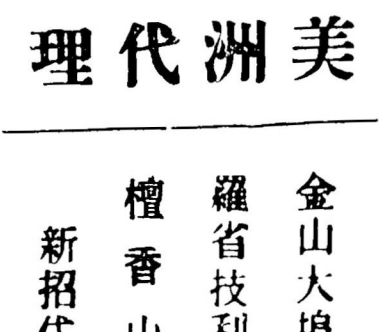 美洲代理
金山大埠
羅省技利
檀香山
新招代